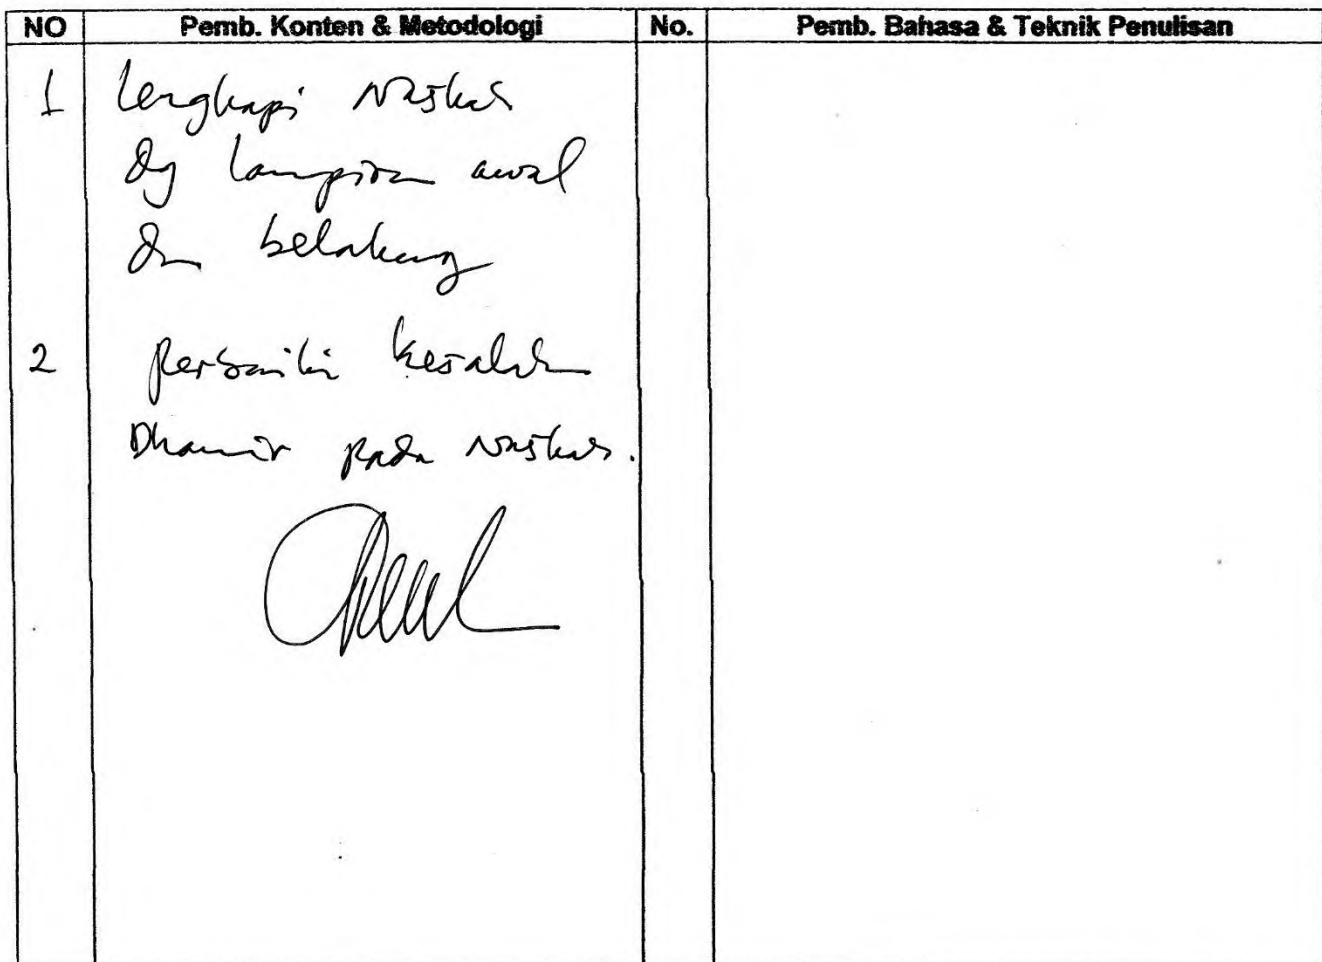 NO Pemb. Konten & Metodologi No. Pemb. Bahasa & Teknik Penulisan
1 lengkapi Naskah
dg lampiran awal
dn belakang
2 Perbaiki kesalahan
Dhamir pada Naskah.